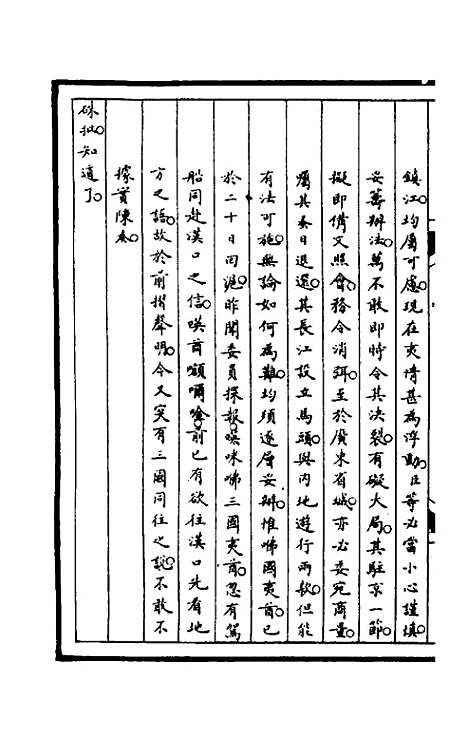 鎮江。均屬可慮。現在夷情甚為浮動。臣等必當小心謹慎。
妥籌辦法。萬不敢即時令其決裂。有礙大局。其駐京一節。
擬即備文照會。務令消弭。至於廣東省城。亦必委宛商量。
屬其奏日退還。其長江設立馬頭。與內地遊行兩款。但能
有法可施。無論如何為難。均須逐層妥辦。惟咈國夷酋。已
於二十日回滬。昨聞委員探報。㗆咪咈三國夷酋。忽有駕
船同赴漢口之信。㗆酋嚬囒喰前已有欲往漢口先看地
方之語。故於前摺聲明。今又突有三國同往之說。不敢不
據實陳奏。
硃批。知道了。